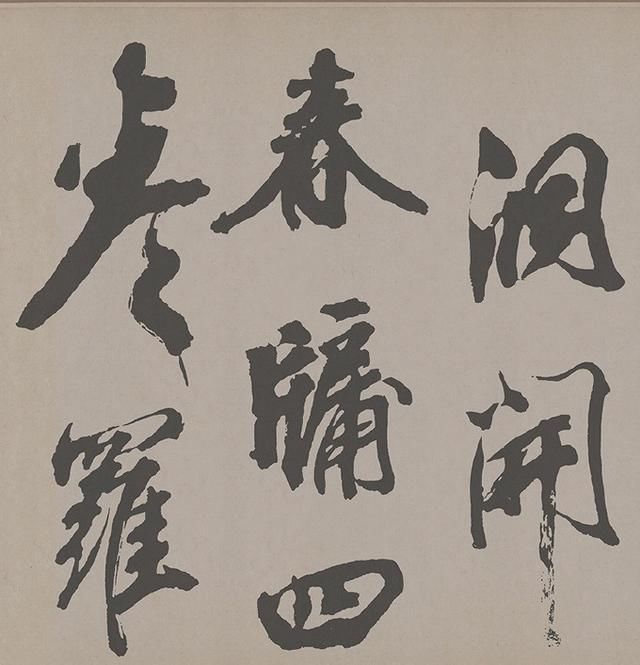 洞開
春牖四
卷羅